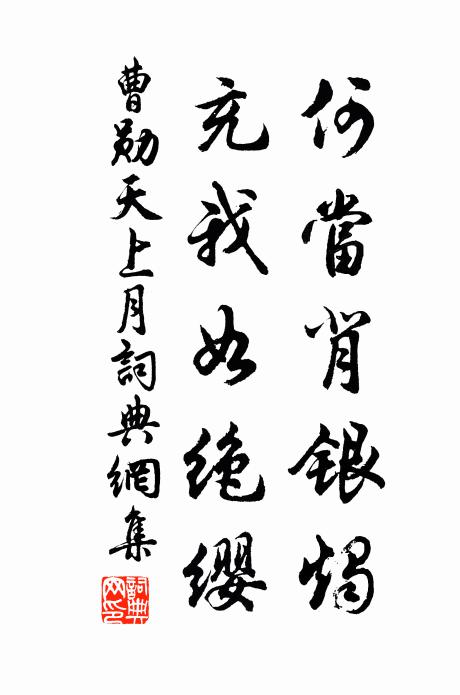 何當背銀燭
充我如绝缨
曹勋天上月詞典網集
詞典網印